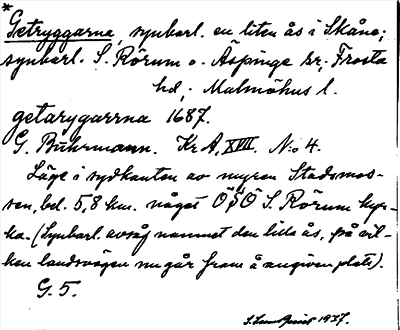 *
Getryggarna, synbarl. en liten ås i Skåne;
synbarl. S. Rörum o. Äspinge sr, Frosta
hd, Malmöhus l.
getarygarrna 1687.
G. Buhrmann. Kr A, XVIII. N:o 4.
Läge i sydkanten av myren Stadsmos-
sen, bel. 5,8 km. något ÖSÖ S. Rörum kyr-
ka. (Synbarl. avsåg namnet den lilla ås, på vil-
ken landsvägen nu går fram å angiven plats).
G. 5.
1937.